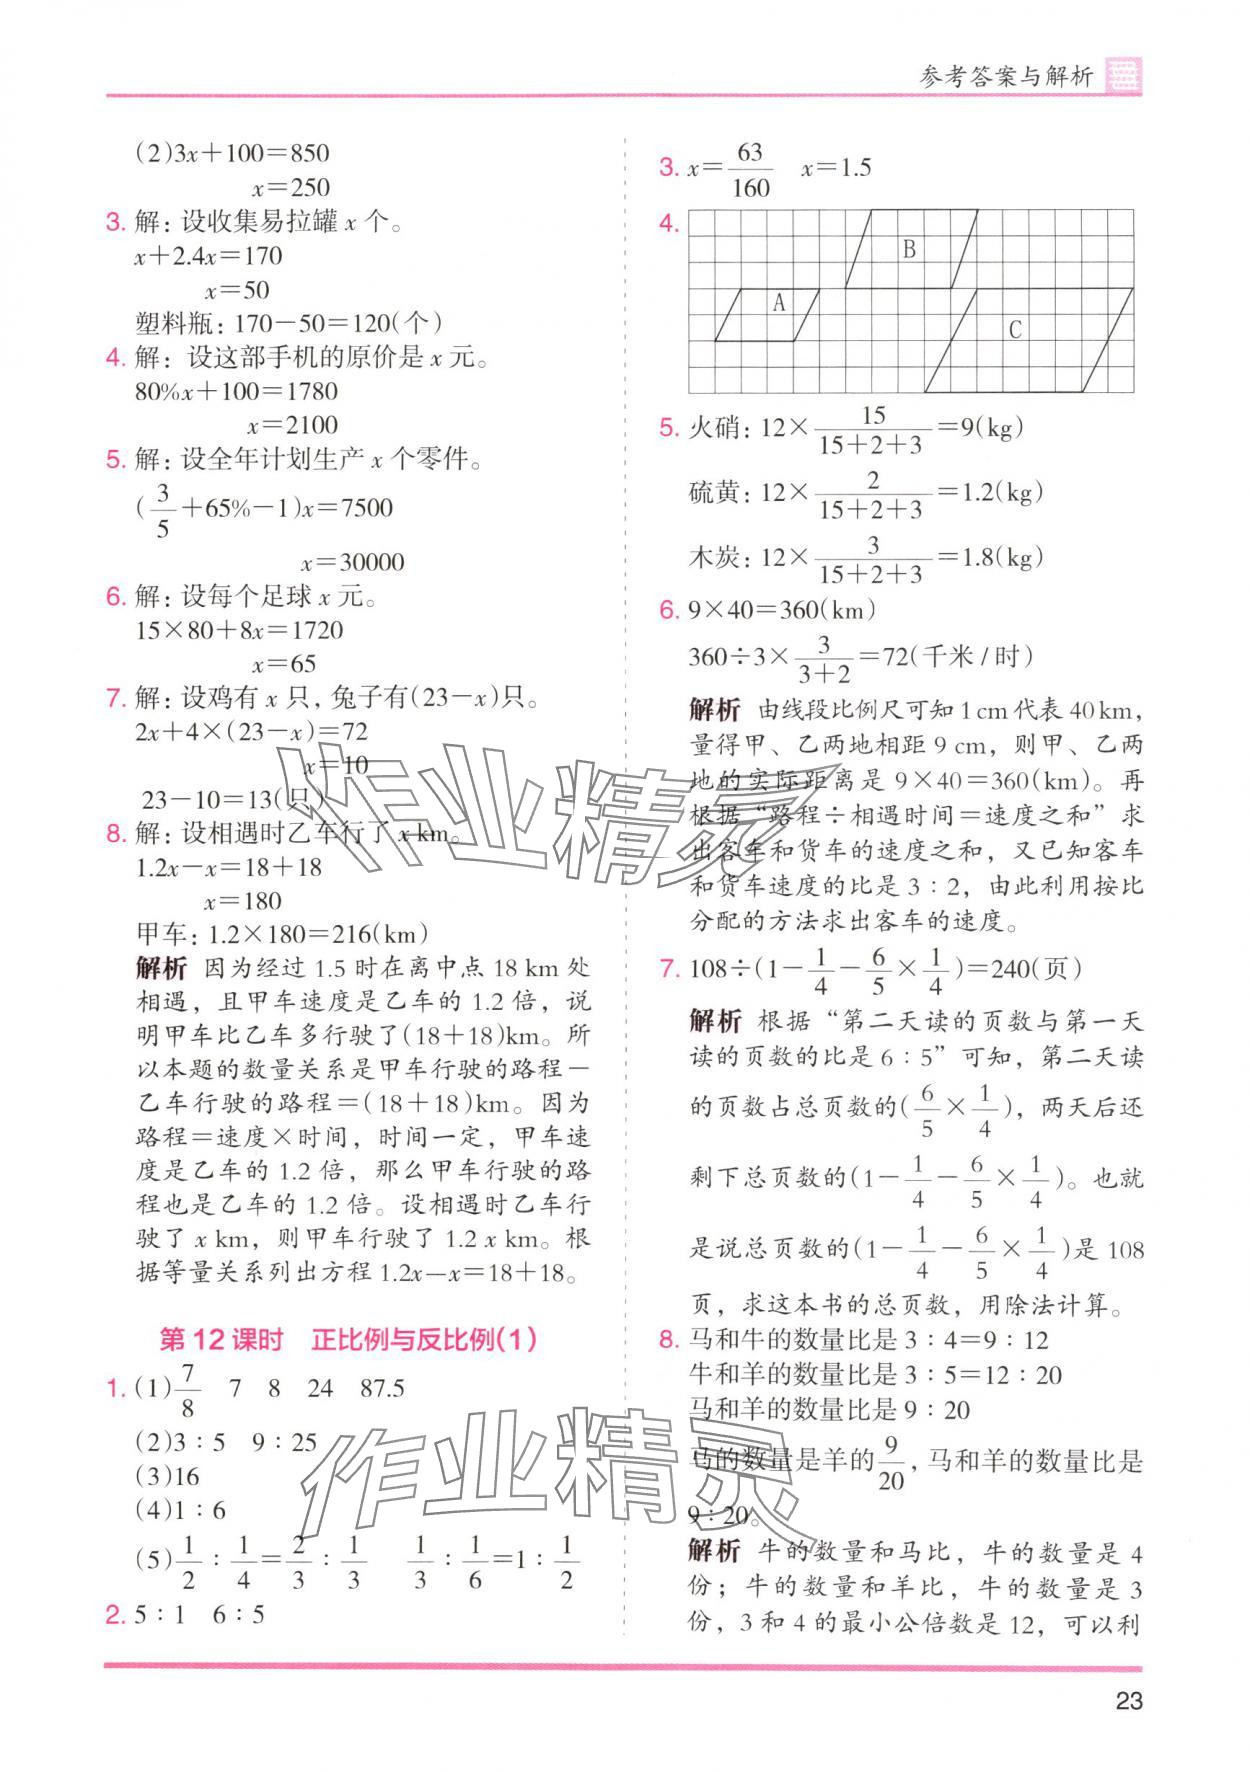 参考答案与解析
(2)3x＋100＝850
x＝250
3. 解：设收集易拉罐 x 个。
x＋2.4x＝170
x＝50
塑料瓶：170－50＝120(个)
4. 解：设这部手机的原价是 x 元。
80%x＋100＝1780
x＝2100
5. 解：设全年计划生产 x 个零件。
(3/5＋65%－1)x＝7500
x＝30000
6. 解：设每个足球 x 元。
15×80＋8x＝1720
x＝65
7. 解：设鸡有 x 只，兔子有(23－x)只。
2x＋4×(23－x)＝72
x＝10
23－10＝13(只)
8. 解：设相遇时乙车行了 x km。
1.2x－x＝18＋18
x＝180
甲车：1.2×180＝216(km)
解析 因为经过 1.5 时在离中点 18 km 处
相遇，且甲车速度是乙车的 1.2 倍，说
明甲车比乙车多行驶了(18＋18)km。所
以本题的数量关系是甲车行驶的路程－
乙车行驶的路程＝(18＋18)km。因为
路程＝速度×时间，时间一定，甲车速
度是乙车的 1.2 倍，那么甲车行驶的路
程也是乙车的 1.2 倍。设相遇时乙车行
驶了 x km，则甲车行驶了 1.2 x km。根
据等量关系列出方程 1.2x－x＝18＋18。
第 12 课时 正比例与反比例(1)
1. (1)7/8 7 8 24 87.5
(2)3：5 9：25
(3)16
(4)1：6
(5)1/2：1/4＝2/3：1/3 1/3：1/6＝1：1/2
2. 5：1 6：5
3. x＝63/160 x＝1.5
4.
B
A
C
5. 火硝：12×15/(15＋2＋3)＝9(kg)
硫黄：12×2/(15＋2＋3)＝1.2(kg)
木炭：12×3/(15＋2＋3)＝1.8(kg)
6. 9×40＝360(km)
360÷3×3/(3＋2)＝72(千米/时)
解析 由线段比例尺可知 1 cm 代表 40 km，
量得甲、乙两地相距 9 cm，则甲、乙两
地的实际距离是 9×40＝360(km)。再
根据“路程÷相遇时间＝速度之和”求
出客车和货车的速度之和，又已知客车
和货车速度的比是 3：2，由此利用按比
分配的方法求出客车的速度。
7. 108÷(1－1/4－6/5×1/4)＝240(页)
解析 根据“第二天读的页数与第一天
读的页数的比是 6：5”可知，第二天读
的页数占总页数的(6/5×1/4)，两天后还
剩下总页数的(1－1/4－6/5×1/4)。也就
是说总页数的(1－1/4－6/5×1/4)是 108
页，求这本书的总页数，用除法计算。
8. 马和牛的数量比是 3：4＝9：12
牛和羊的数量比是 3：5＝12：20
马和羊的数量比是 9：20
马的数量是羊的9/20，马和羊的数量比是
9：20。
解析 牛的数量和马比，牛的数量是 4
份；牛的数量和羊比，牛的数量是 3
份，3 和 4 的最小公倍数是 12，可以利
作业精灵
作业精灵
23